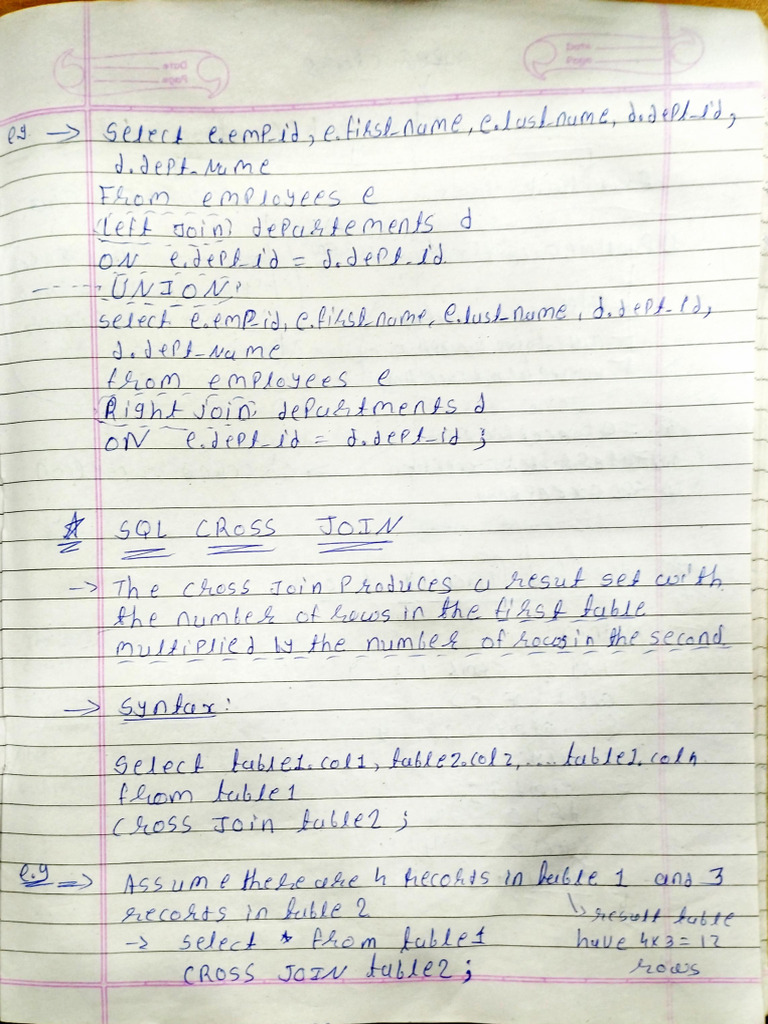 Date
Page
Date
Page
e.g. → Select e.emp_id, e.first_name, e.last_name, d.dept_id,
d.dept_Name
From employees e
Left Join departements d
ON e.dept_id = d.dept_id
UNION
select e.emp_id, e.first_name, e.last_name, d.dept_id,
d.dept_Name
from employees e
Right join departments d
ON e.dept_id = d.dept_id ;
☆ SQL CROSS JOIN
→ The cross Join Produces a result set with
the number of rows in the first table
multiplied by the number of rows in the second
→ Syntax :
Select table1.col1, table2.col2, .... table1.coln
from table1
Cross Join table2 ;
e.g ⇒ Assume there are 4 records in table 1 and 3
records in table 2
↳ result table
→ select * from table1
have 4x3 = 12
CROSS JOIN table2 ;
rows